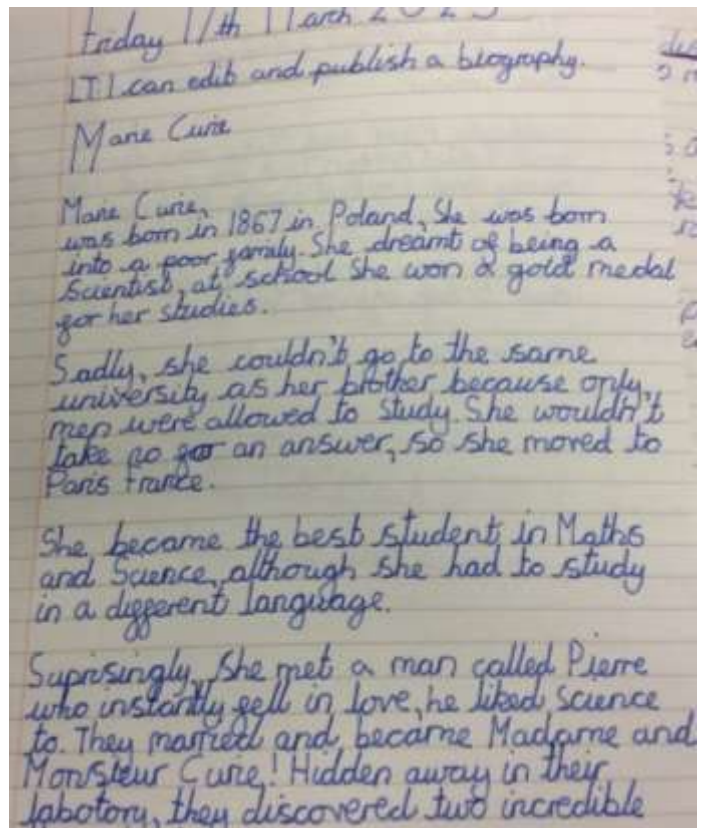 Friday 17th March 2023
LT I can edit and publish a biography.
Marie Curie
Marie Curie,
was born in 1867 in Poland, She was born
into a poor family. She dreamt of being a
Scientist, at school She won a gold medal
for her studies.
Sadly, she couldn't go to the same
university as her brother because only,
men were allowed to study. She wouldn't
take no for an answer, so she moved to
Paris France.
She became the best student in Maths
and Science, although she had to study
in a different language.
Suprisingly, She met a man called Pierre
who instantly fell in love, he liked science
to. They married and became Madame and
Monsieur Curie! Hidden away in their
labotory, they discovered two incredible